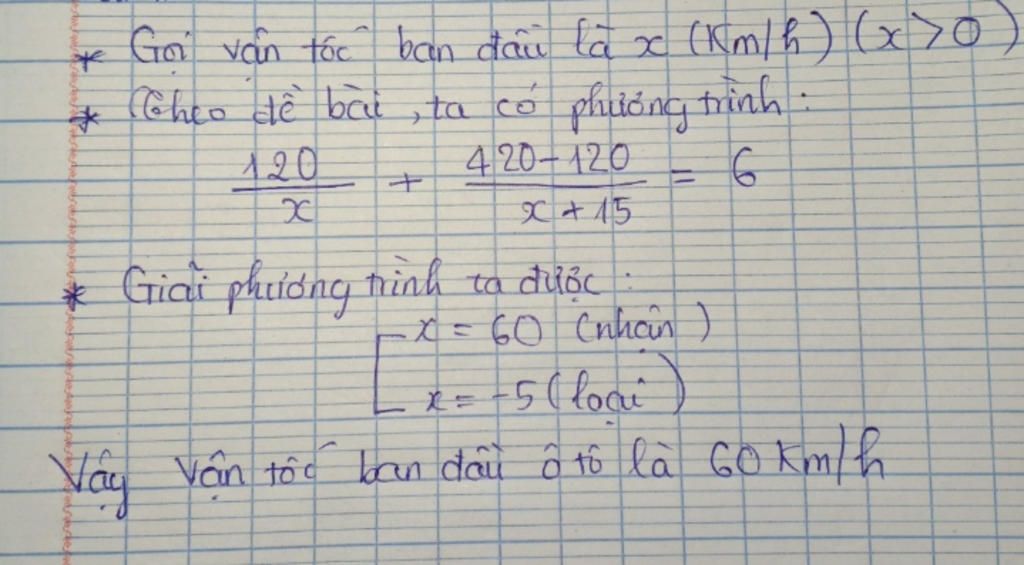 * Gọi vận tốc ban đầu là x (Km/h) (x > 0)
* Theo đề bài, ta có phương trình:
120/x + 420-120/x+15 = 6
* Giải phương trình ta được:
[ x = 60 (nhận)
x = -5 (loại)
Vậy vận tốc ban đầu ô tô là 60 Km/h